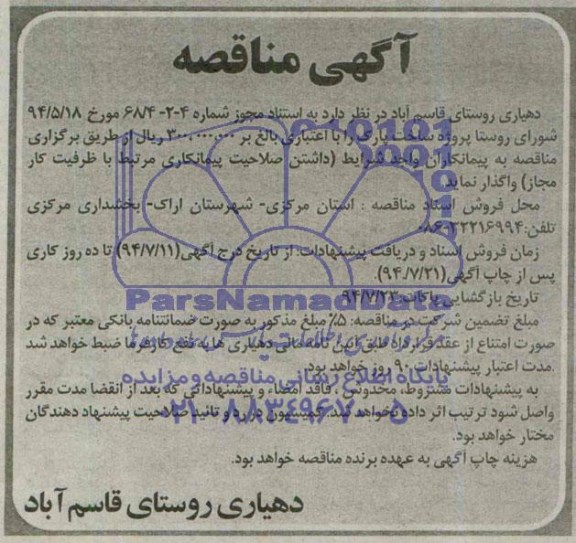 آگهی مناقصه
دهیاری روستای قاسم آباد در نظر دارد به استناد مجوز شماره ۴-۲- ۶۸/۴ مورخ ۹۴/۵/۱۸
شورای روستا پروژه ساخت پارک را با اعتباری بالغ بر ۳۰۰،۰۰۰،۰۰۰ ریال از طریق برگزاری
مناقصه به پیمانکاران واجد شرایط (داشتن صلاحیت پیمانکاری مرتبط با ظرفیت کار
مجاز) واگذار نماید.
محل فروش اسناد مناقصه : استان مرکزی- شهرستان اراک- بخشداری مرکزی
تلفن:۳۲۲۱۶۹۹۴-۰۸۶
زمان فروش اسناد و دریافت پیشنهادات: از تاریخ درج آگهی(۹۴/۷/۱۱) تا ده روز کاری
پس از چاپ آگهی(۹۴/۷/۲۱).
تاریخ بازگشایی پاکات: ۹۴/۷/۲۳
مبلغ تضمین شرکت در مناقصه: ۵٪ مبلغ مذکور به صورت ضمانتنامه بانکی معتبر که در
صورت امتناع از عقد قرارداد طبق آیین نامه مالی دهیاری ها به نفع کارفرما ضبط خواهد شد
.مدت اعتبار پیشنهادات ۹۰ روز خواهد بود.
به پیشنهادات مشروط، مخدوش ، فاقد امضاء و پیشنهاداتی که بعد از انقضا مدت مقرر
واصل شود ترتیب اثر داده نخواهد شد. کمیسیون در رد و تائید صلاحیت پیشنهاد دهندگان
مختار خواهد بود.
هزینه چاپ آگهی به عهده برنده مناقصه خواهد بود.
دهیاری روستای قاسم آباد
ParsNamadData
پایگاه اطلاع رسانی مناقصه و مزایده
۰۲۱-۸۸۳۴۹۶۷۰-۵